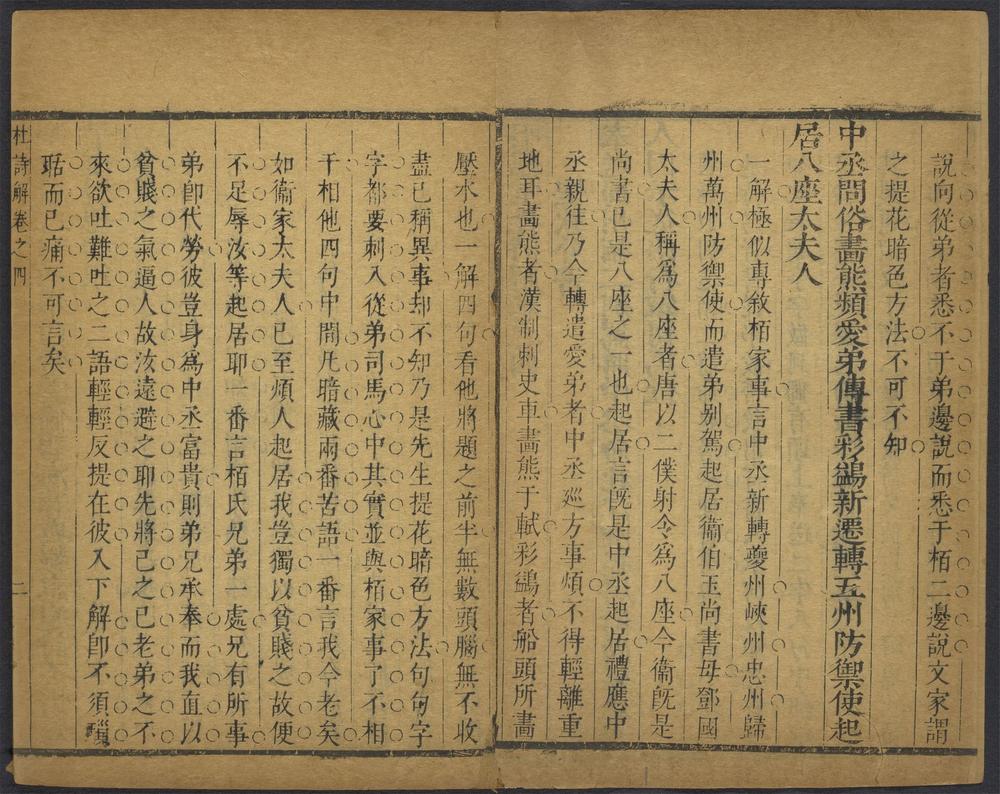 說向從弟者悉不于弟邊說而悉于栢二邊說文家謂
之提花暗色方法不可不知
中丞問俗畫熊頻愛弟傳書彩鷁新遷轉五州防禦使起
居八座太夫人
一解極似專敘栢家事言中丞新轉夔州峽州忠州歸
州萬州防禦使而遣弟別駕起居衞伯玉尚書母鄧國
太夫人稱爲八座者唐以二僕射令爲八座今衞旣是
尚書已是八座之一也起居言旣是中丞起居禮應中
丞親往乃今轉遣愛弟者中丞廵方事煩不得輕離重
地耳畫熊者漢制刺史車畫熊于軾彩鷁者船頭所畫
壓水也一解四句看他將題之前半無數頭腦無不收
盡已稱異事却不知乃是先生提花暗色方法句句字
字都要刺入從弟司馬心中其實並與栢家事了不相
干相他四句中間凡暗藏兩番苦語一番言我今老矣
如衞家太夫人已至煩人起居我豈獨以貧賤之故便
不足辱汝等起居耶一番言栢氏兄弟一處兄有所事
弟卽代勞彼豈身爲中丞富貴則弟兄承奉而我直以
貧賤之氣逼人故汝遠避之耶先將己之已老弟之不
來欲吐難吐之二語輕輕反提在彼入下解卽不須瑣
聒而已痛不可言矣
杜詩解卷之四
二